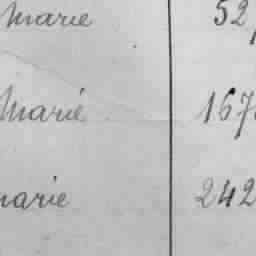 Marie 52
Marie 167
marie 242